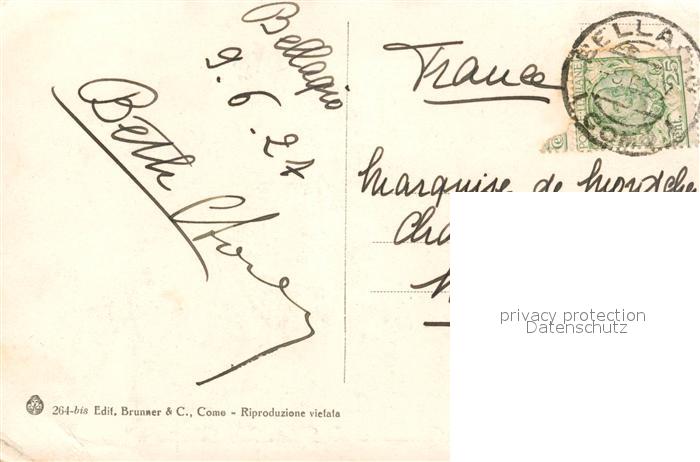 Bellagio
9.6.27
Beth
France
BELLAGIO
COMO
25
Marquise de
privacy protection
Datenschutz
264-bis Edit. Brunner & C., Como - Riproduzione vietata